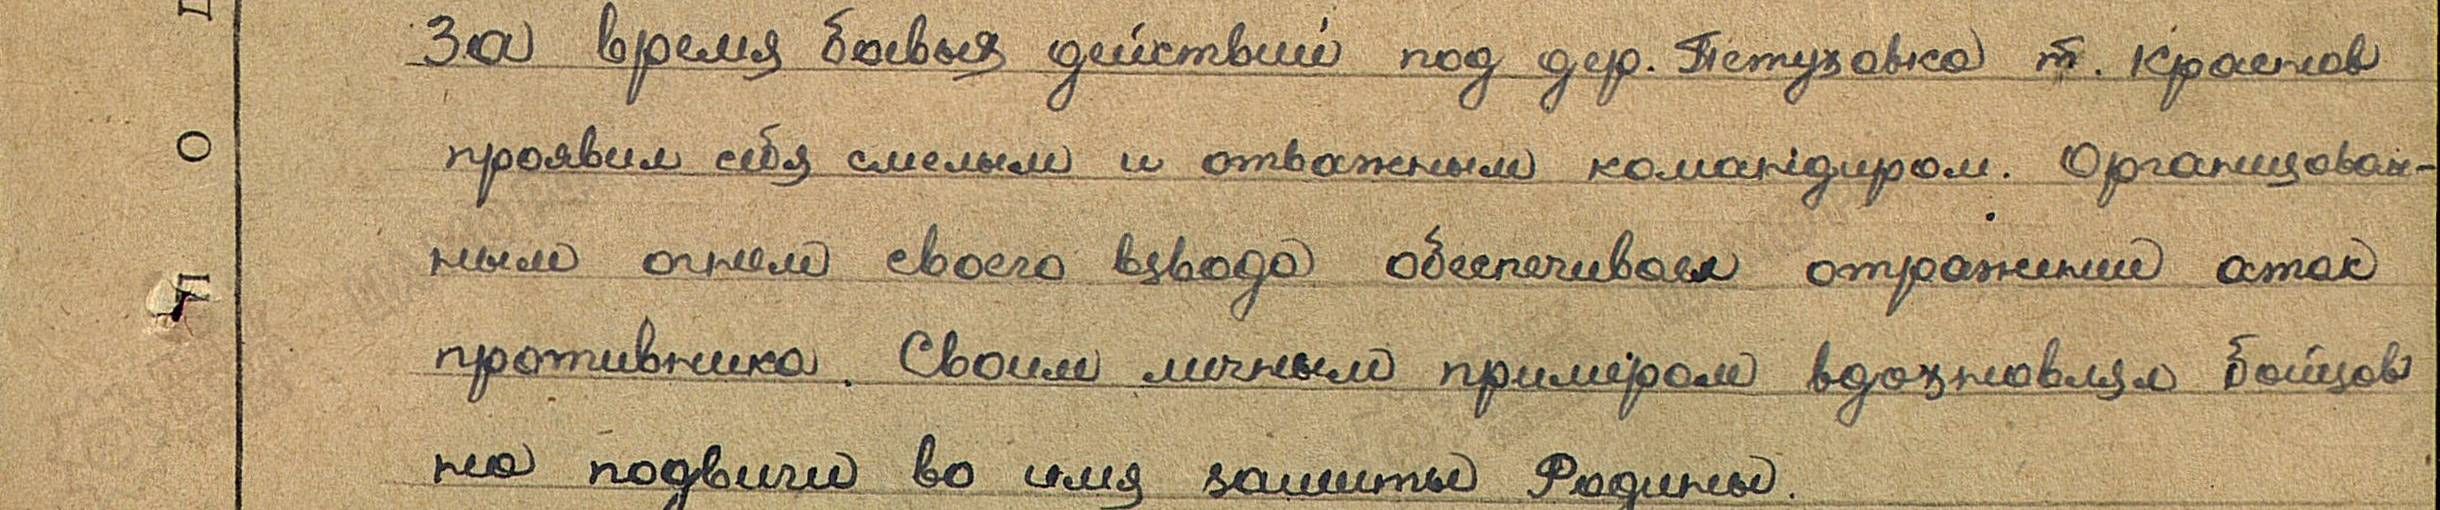 За время боевых действий под дер. Петуховка т. Краснов
проявил себя смелым и отважным командиром. Организован-
ным огнем своего взвода обеспечивал отражении атак
противника. Своим личным примером вдохновлял бойцов
на подвиги во имя защиты Родины.
П
О